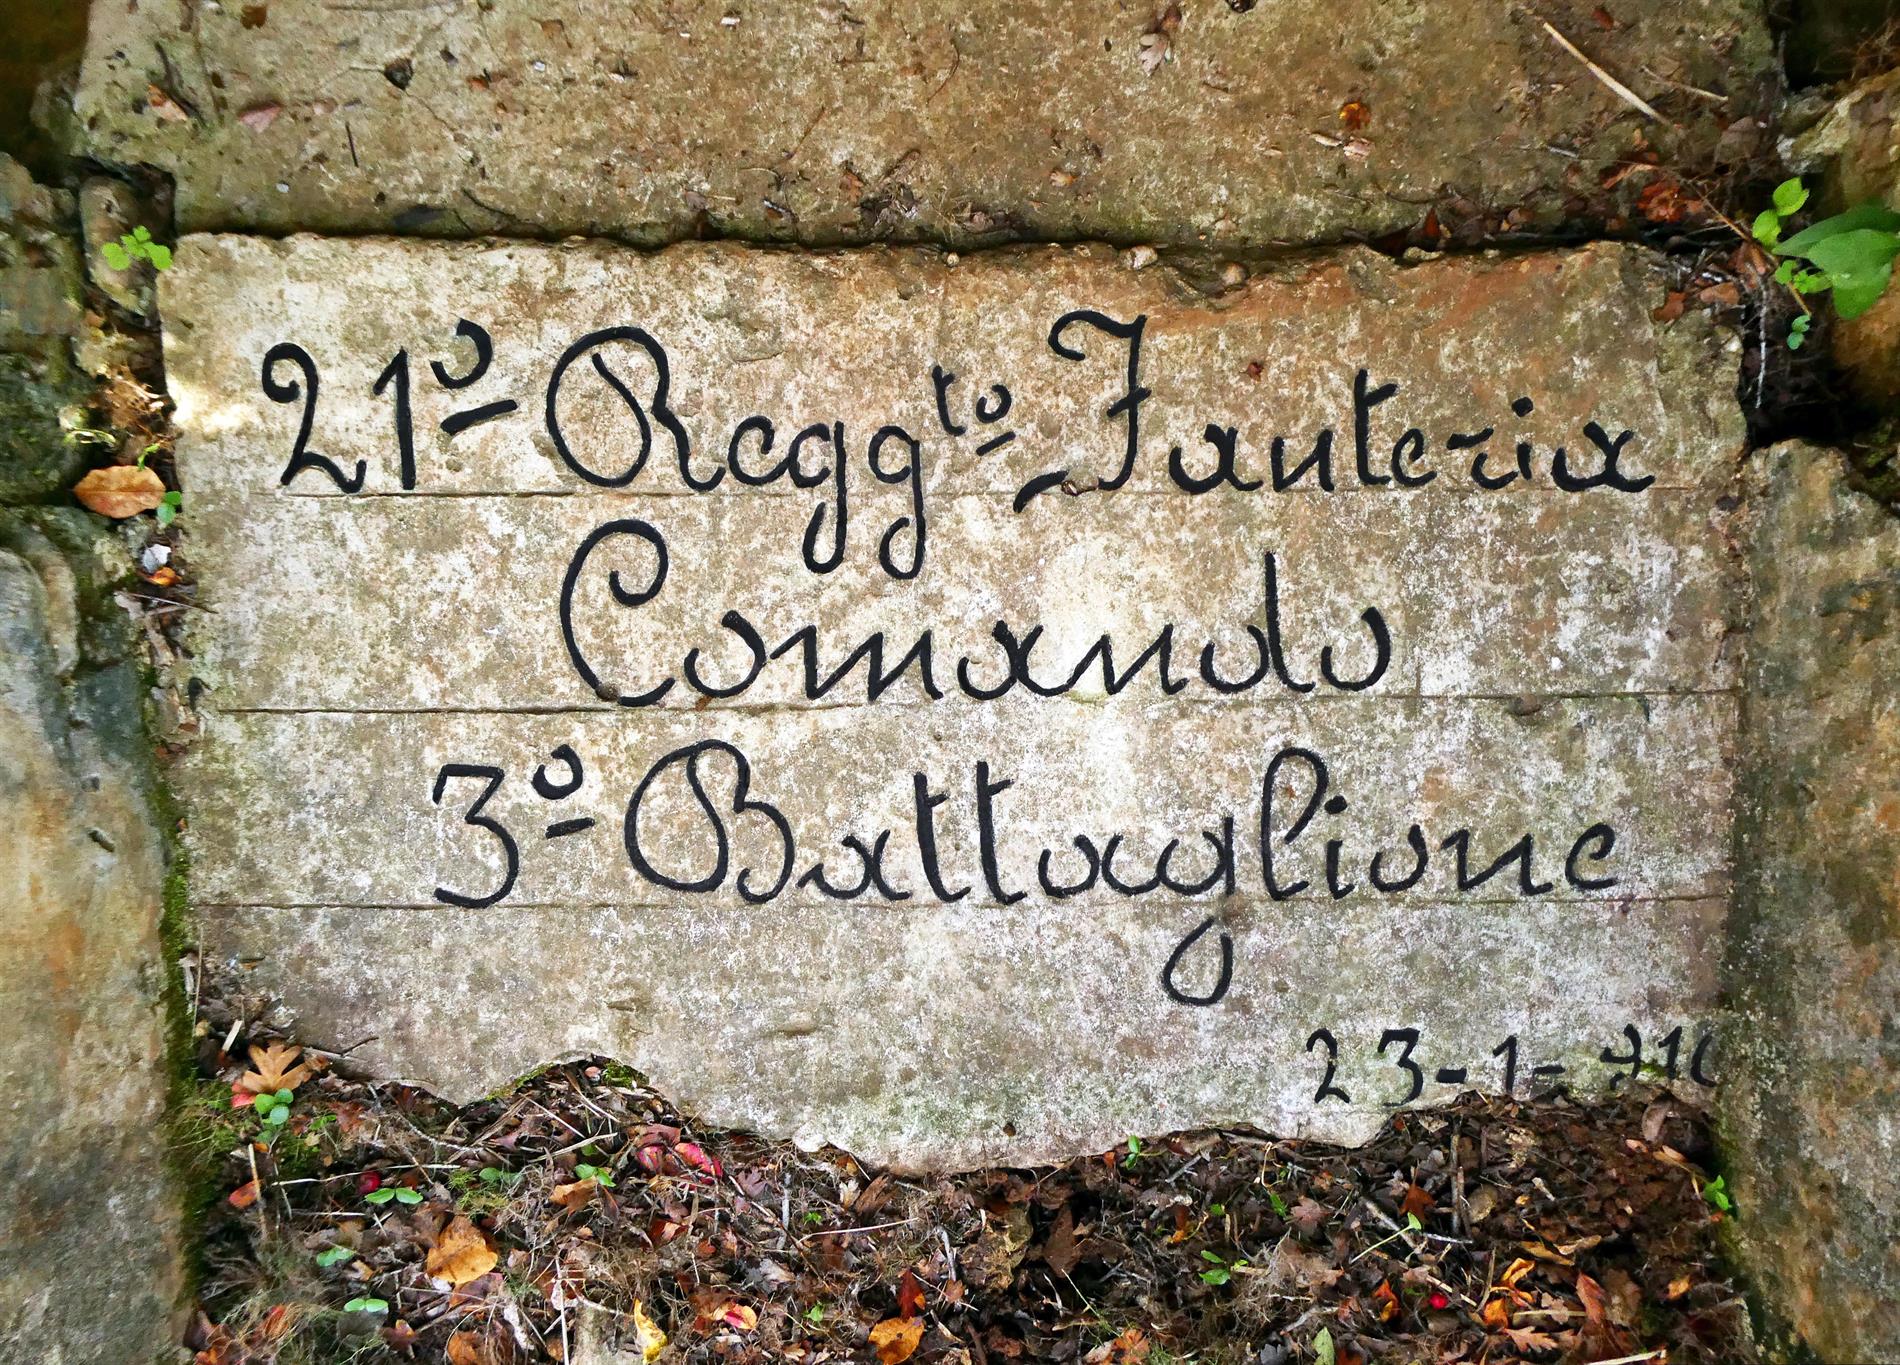 21º Regg.to Fanteria
Comando
3º Battaglione
23-1-916